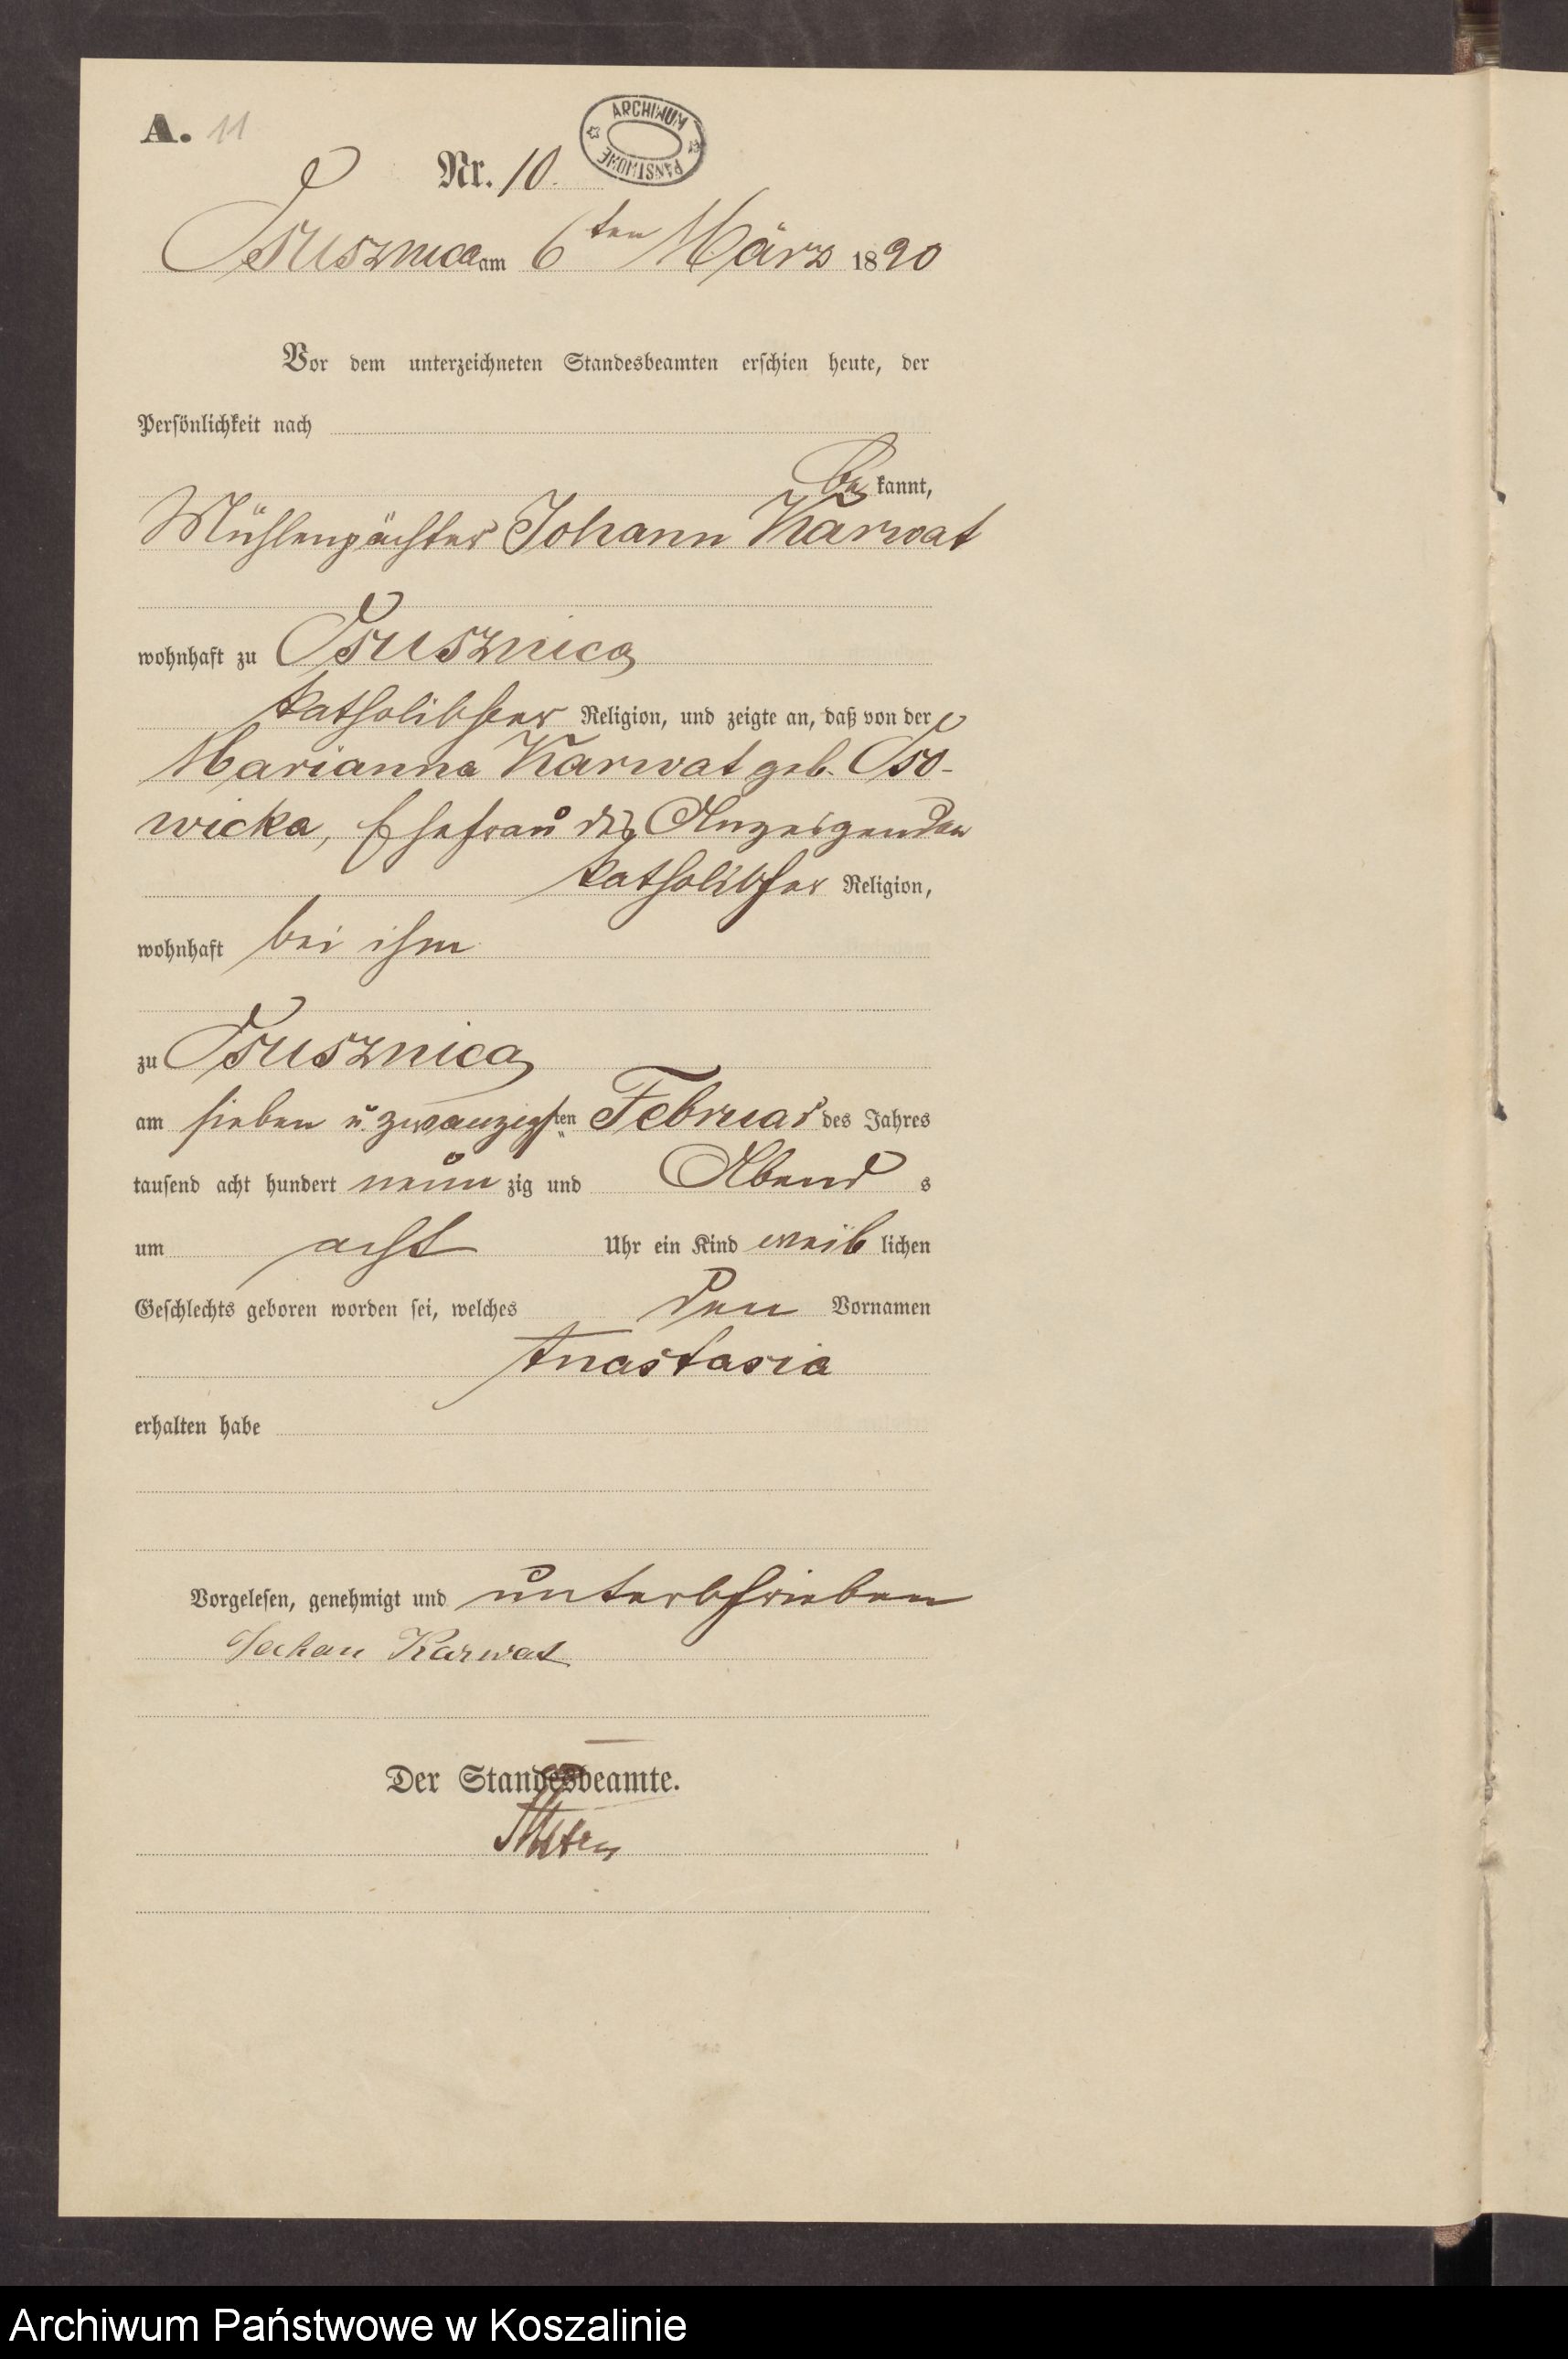 A. 11
ARCHIWUM PAŃSTWOWE
Nr. 10.
Osusznica am 6ten März 1890
Vor dem unterzeichneten Standesbeamten erschien heute, der
Persönlichkeit nach
be kannt,
Mühlenpächter Johann Karwat
wohnhaft zu Osusznica
katholischer Religion, und zeigte an, daß von der
Marianna Karwat geb. Oso-
wicka, Ehefrau des Anzeigenden
katholischer Religion,
wohnhaft bei ihm
zu Osusznica
am sieben u. zwanzigsten Februar des Jahres
tausend acht hundert neun zig und Abend s
um acht Uhr ein Kind weib lichen
Geschlechts geboren worden sei, welches den Vornamen
Anastasia
erhalten habe
Vorgelesen, genehmigt und unterschrieben
Karwat
Der Standesbeamte.
Archiwum Państwowe w Koszalinie